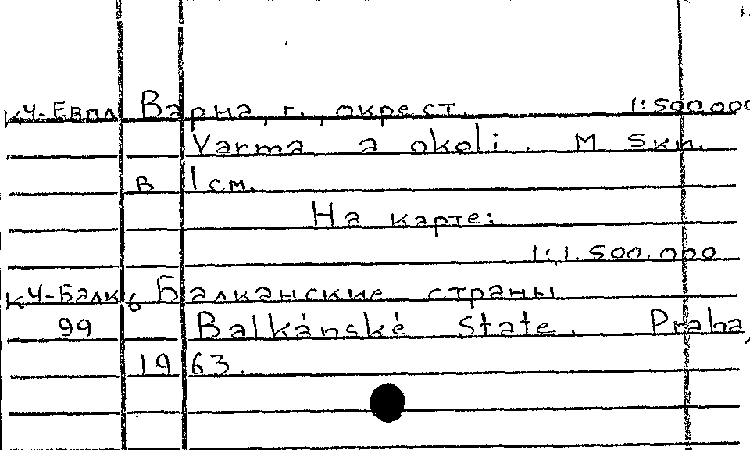 КЧ-Евпл Варна, г., окрест. 1:500.000
Varma a okoli. М 5км.
в 1см.
На карте:
1:1.500.000
КЧ-Балк, Балканские страны
99 Balkánské State. Praha,
1963.